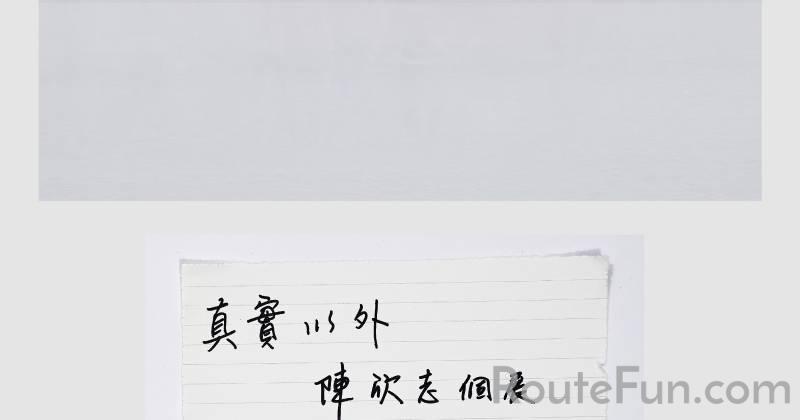 真實以外
陳欣志個展
RouteFun.com